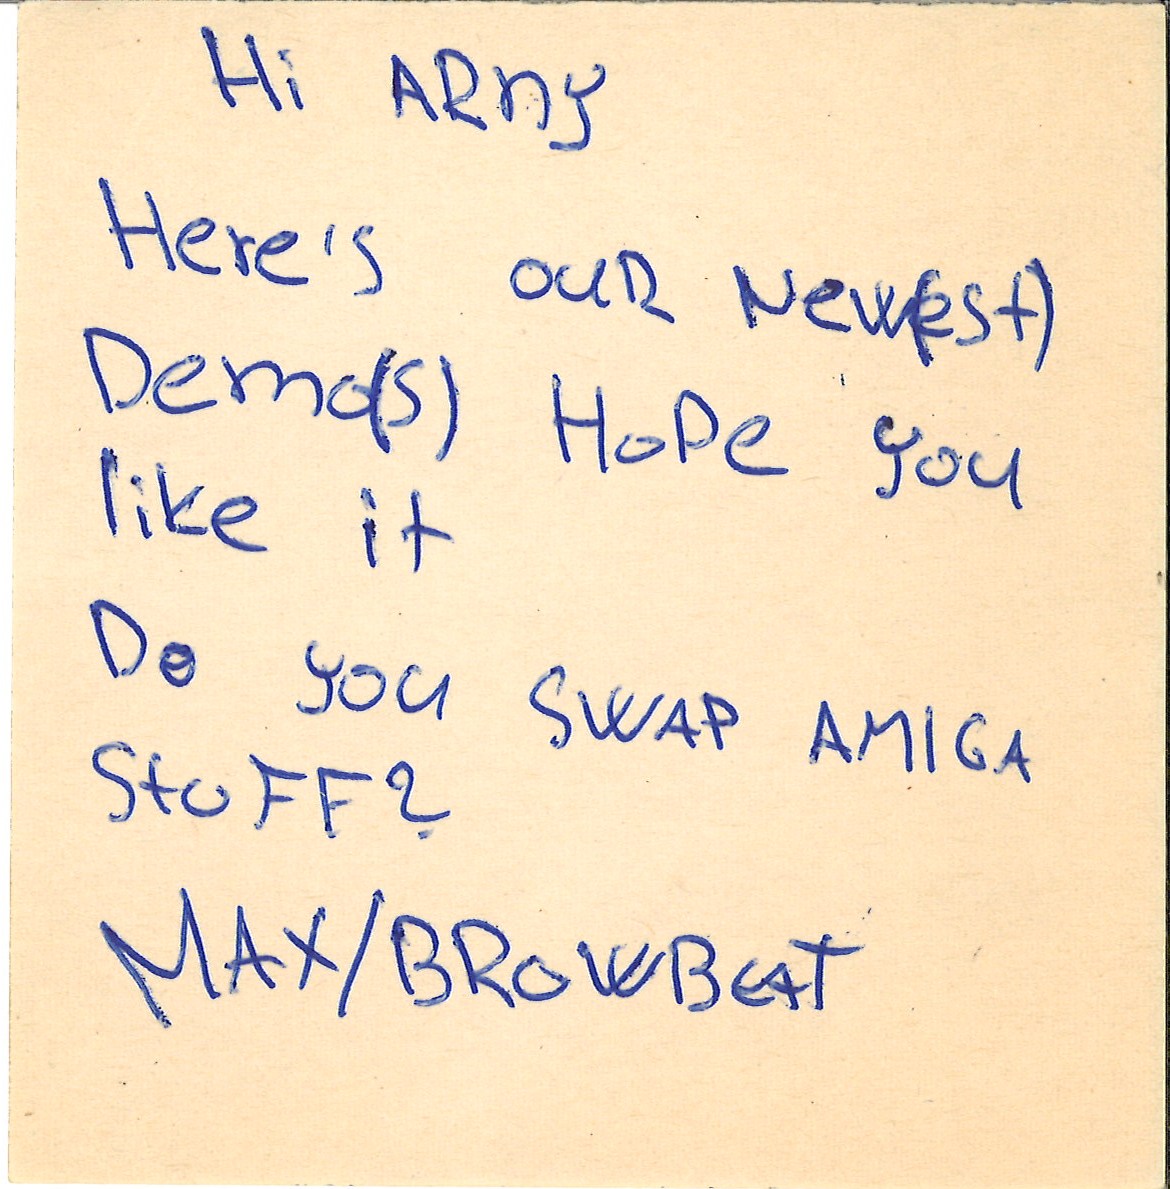 Hi ARny
Here's ouR New(est)
Demo(s) HoPe you
like it
Do you SWAP AMIGA
StuFF?
MAX/BROWBEAT